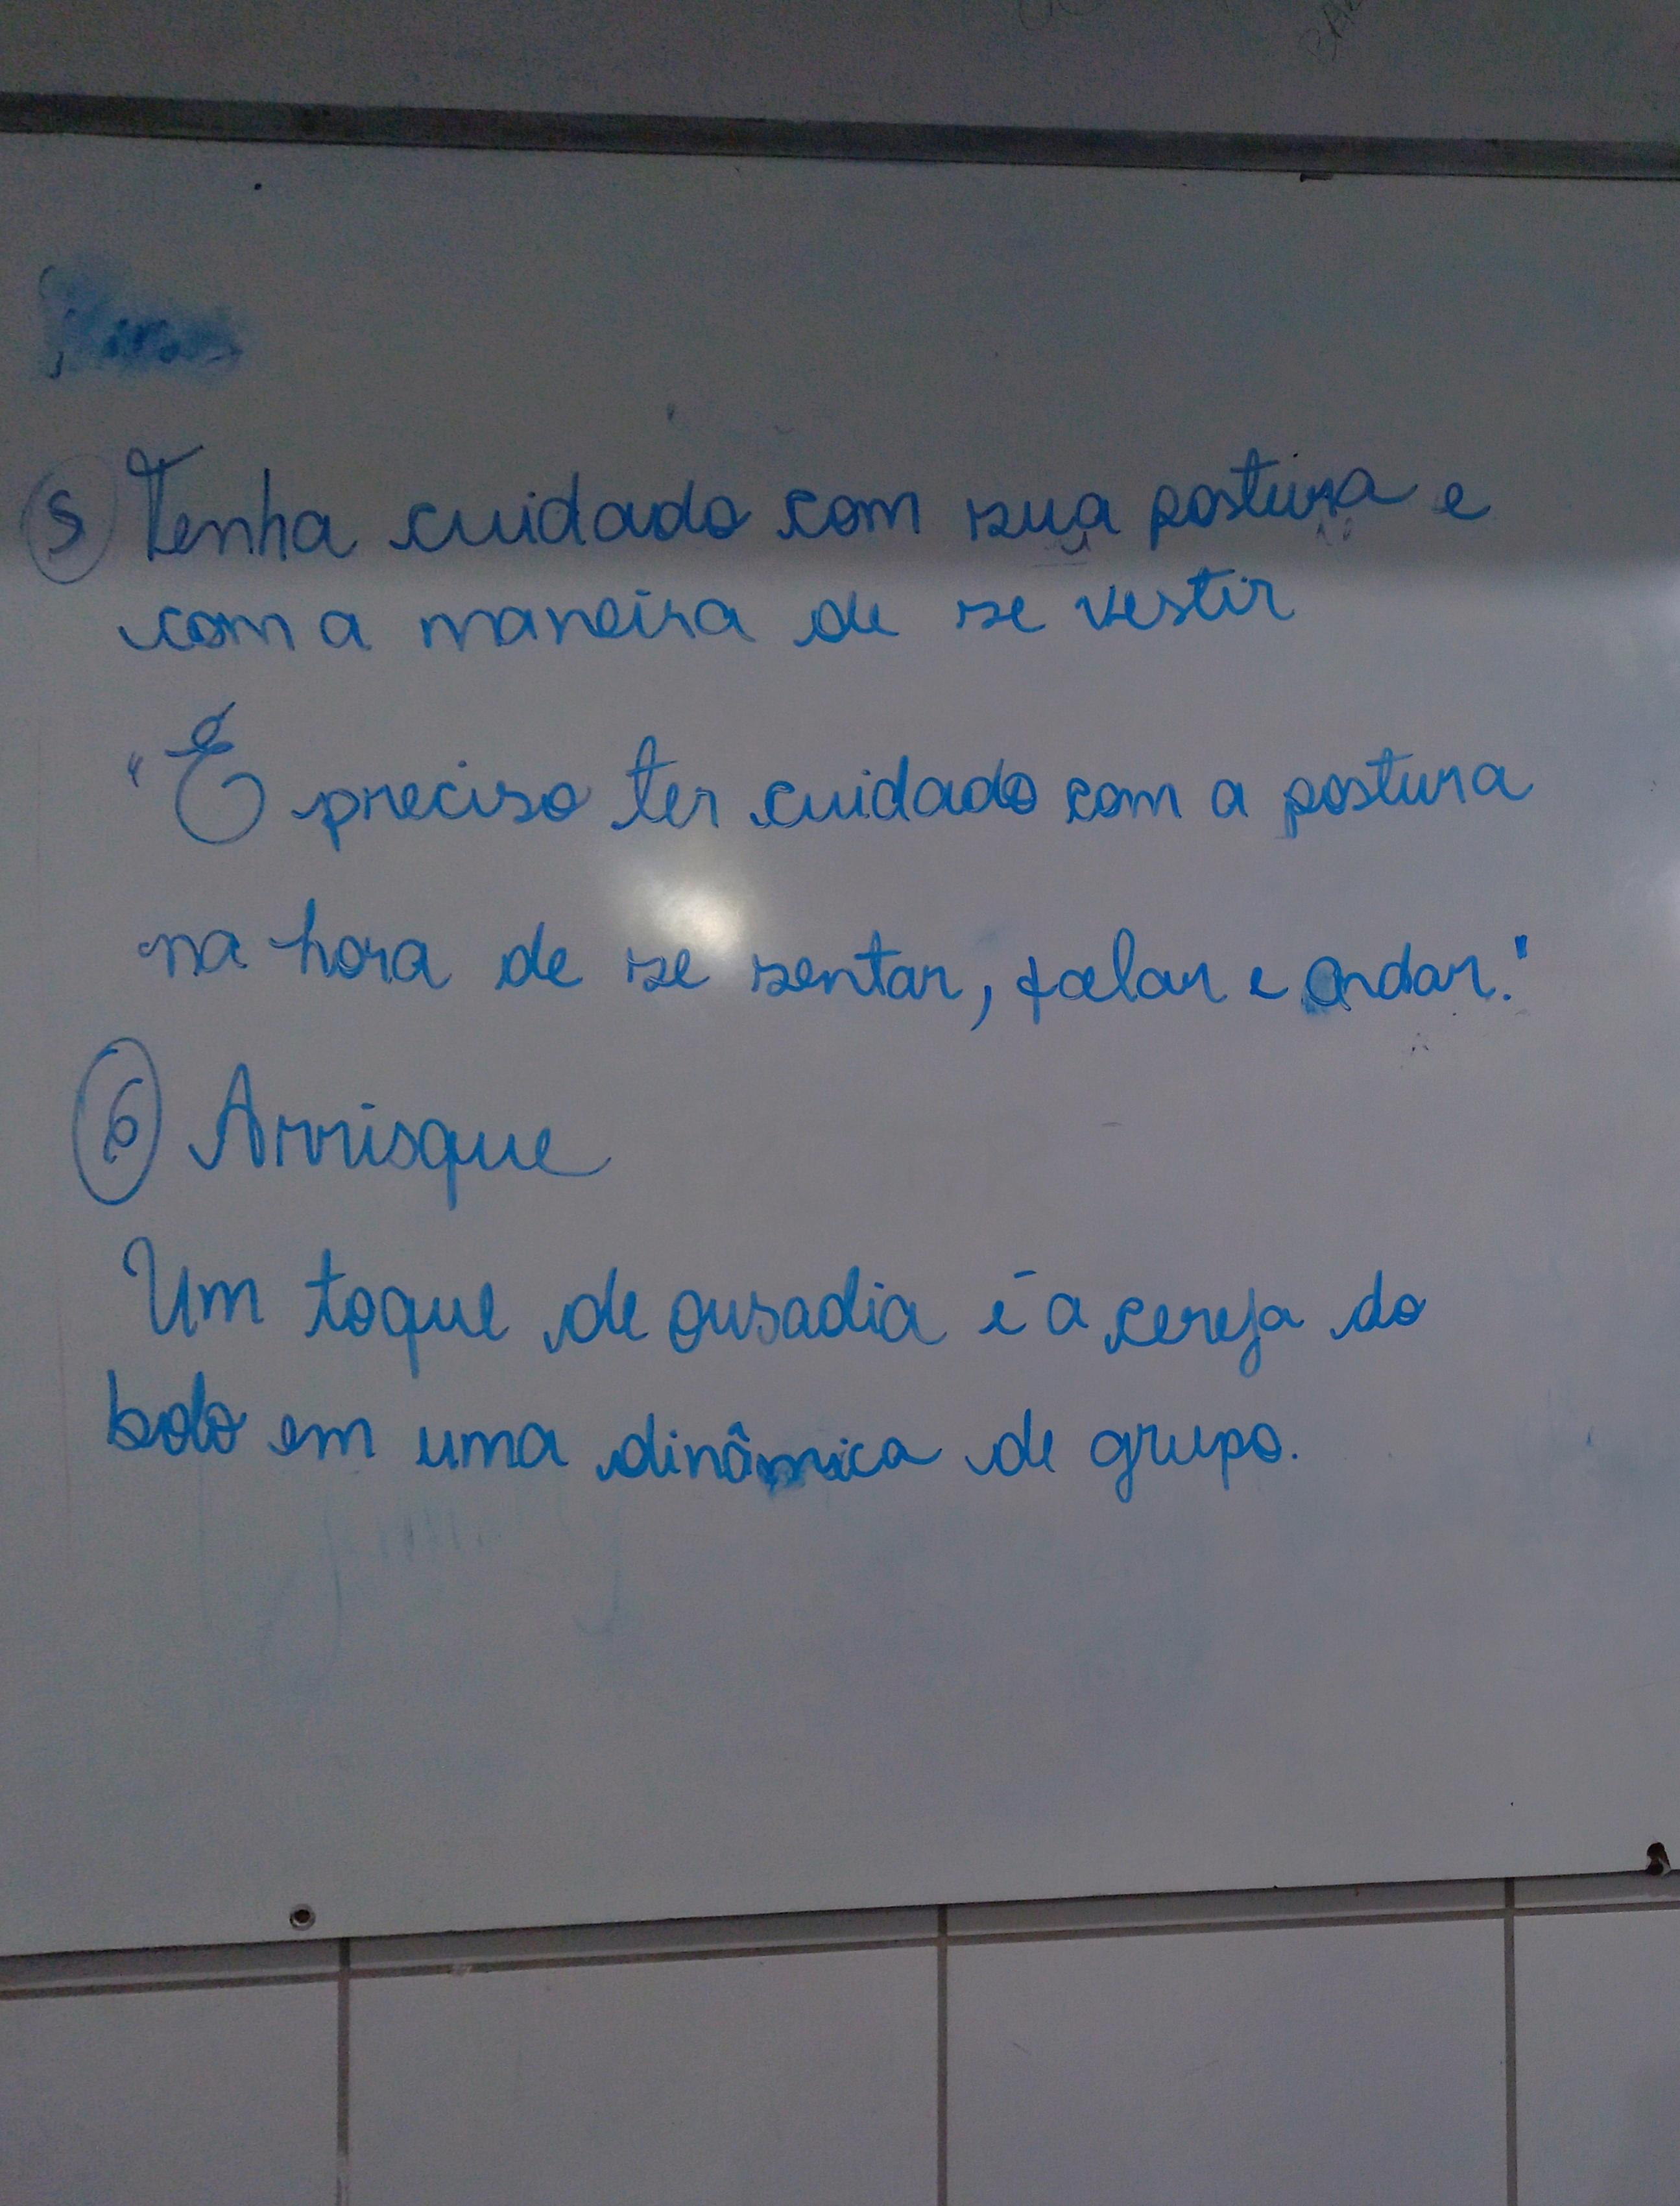 5 Tenha cuidado com sua postura e
com a maneira de se vestir
"É preciso ter cuidado com a postura
na hora de se sentar, falar e andar."
6 Arrisque
Um toque de ousadia é a cereja do
bolo em uma dinâmica de grupo.